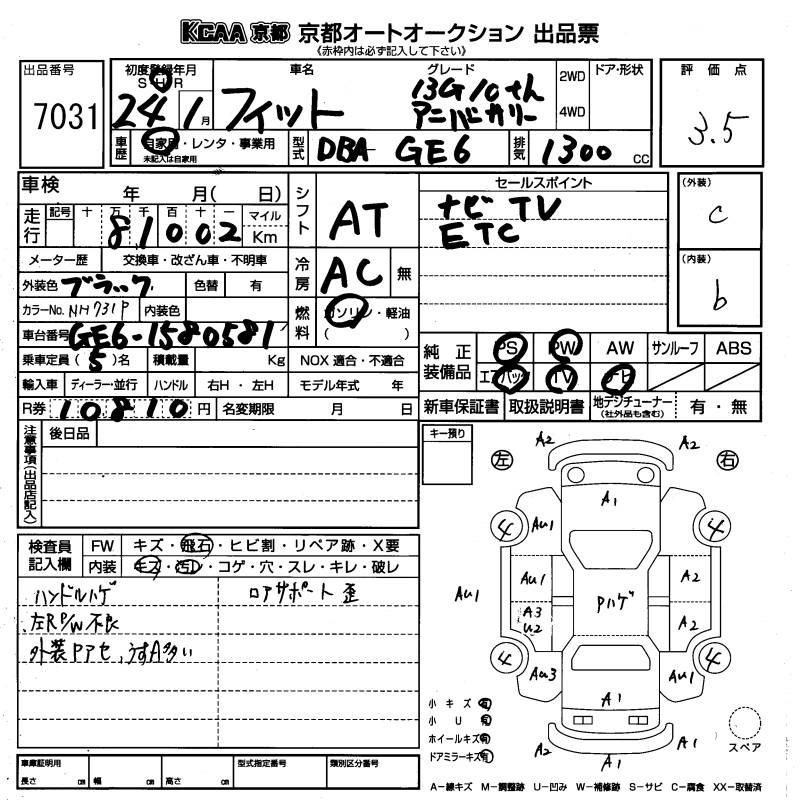 KCAA 京都 京都オートオークション 出品票
《赤枠内は必ず記入して下さい》
出品番号 初度登録年月 車名 グレード 2WD ドア・形状 評価点
S H R
7031 24 1月 フィット 13G 10th 4WD 3.5
アニバーサリー
車歴 自家用・レンタ・事業用 型式 DBA GE6 排気 1300 CC
未記入は自家用
車検 年 月( 日) シフト AT セールスポイント (外装)
走行 記号 十 万 千 百 十 一 マイル ナビ TV c
81002 Km ETC
メーター歴 交換車・改ざん車・不明車 冷房 AC 無 (内装)
外装色 ブラック 色替 有 b
カラーNo. NH731P 内装色 燃料 ガソリン・軽油
車台番号 GE6-1580581 ( )
乗車定員 (5)名 積載量 Kg NOX 適合・不適合 純正装備品 PS PW AW サンルーフ ABS
輸入車 ディーラー・並行 ハンドル 右H・左H モデル年式 年 エアバッグ TV ナビ
R券 10810円 名変期限 月 日 新車保証書 取扱説明書 地デジチューナー 有・無
(社外品も含む)
注意事項(出品店記入) 後日品 キー預り
左 右
A2 A2
A1
4 Au1 4
検査員記入欄 FW キズ・飛石・ヒビ割・リペア跡・X要
内装 キズ・汚レ・コゲ・穴・スレ・キレ・破レ
ハンドルハゲ ロアサポート歪
左R P/W不良
外装Pアセ、うすA多い
Au1 Au1 Pハゲ A2
A3 U2 A2
4 Au3 Au1 4
A1
A2 A1
小キズ 有
小U 有
ホイールキズ 有
ドアミラーキズ 有
スペア
車庫証明用 型式指定番号 類別区分番号
長さ cm 幅 cm 高さ cm
A−線キズ M−調整跡 U−凹み W−補修跡 S−サビ C−腐食 XX−取替済